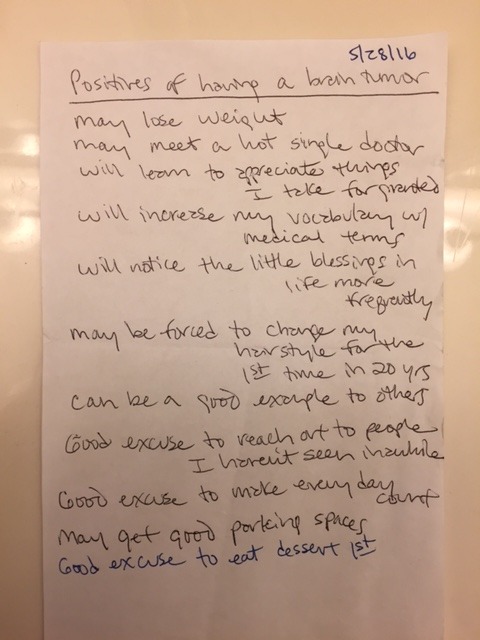 5/28/16
Positives of having a brain tumor
may lose weight
may meet a hot single doctor
will learn to appreciate things
I take for granted
will increase my vocabulary w/
medical terms
will notice the little blessings in
life more
frequently
may be forced to change my
hairstyle for the
1st time in 20 yrs
can be a good example to others
Good excuse to reach out to people
I haven't seen in awhile
Good excuse to make every day
count
May get good parking spaces
Good excuse to eat dessert 1st